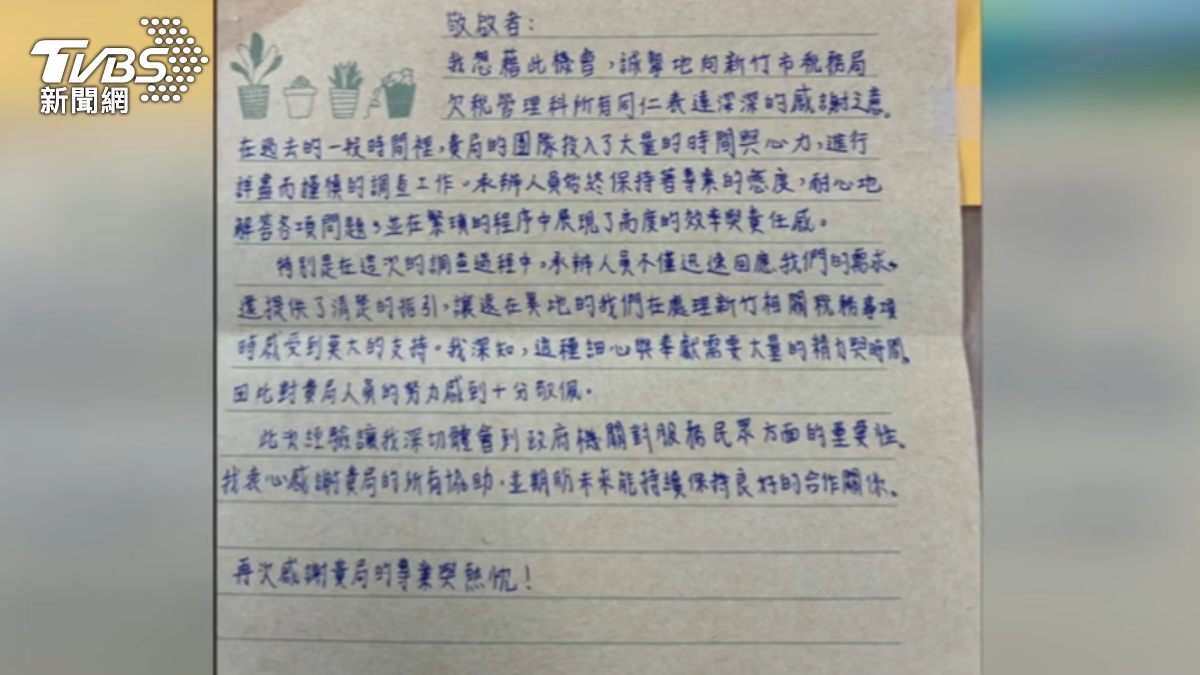 TVBS
新聞網
敬啟者：
我想藉此機會，誠摯地向新竹市稅務局
欠稅管理科所有同仁表達深深的感謝之意。
在過去的一段時間裡，貴局的團隊投入了大量的時間與心力，進行
詳盡而謹慎的調查工作。承辦人員始終保持著專業的態度，耐心地
解答各項問題，並在繁瑣的程序中展現了高度的效率與責任感。
特別是在這次的調查過程中，承辦人員不僅迅速回應我們的需求，
還提供了清楚的指引，讓遠在異地的我們在處理新竹相關稅務事項
時感受到莫大的支持。我深知，這種細心與奉獻需要大量的精力與時間，
因此對貴局人員的努力感到十分敬佩。
此次經驗讓我深切體會到政府機關對服務民眾方面的重要性。
我衷心感謝貴局的所有協助，並期盼未來能持續保持良好的合作關係。
再次感謝貴局的專業與熱忱！